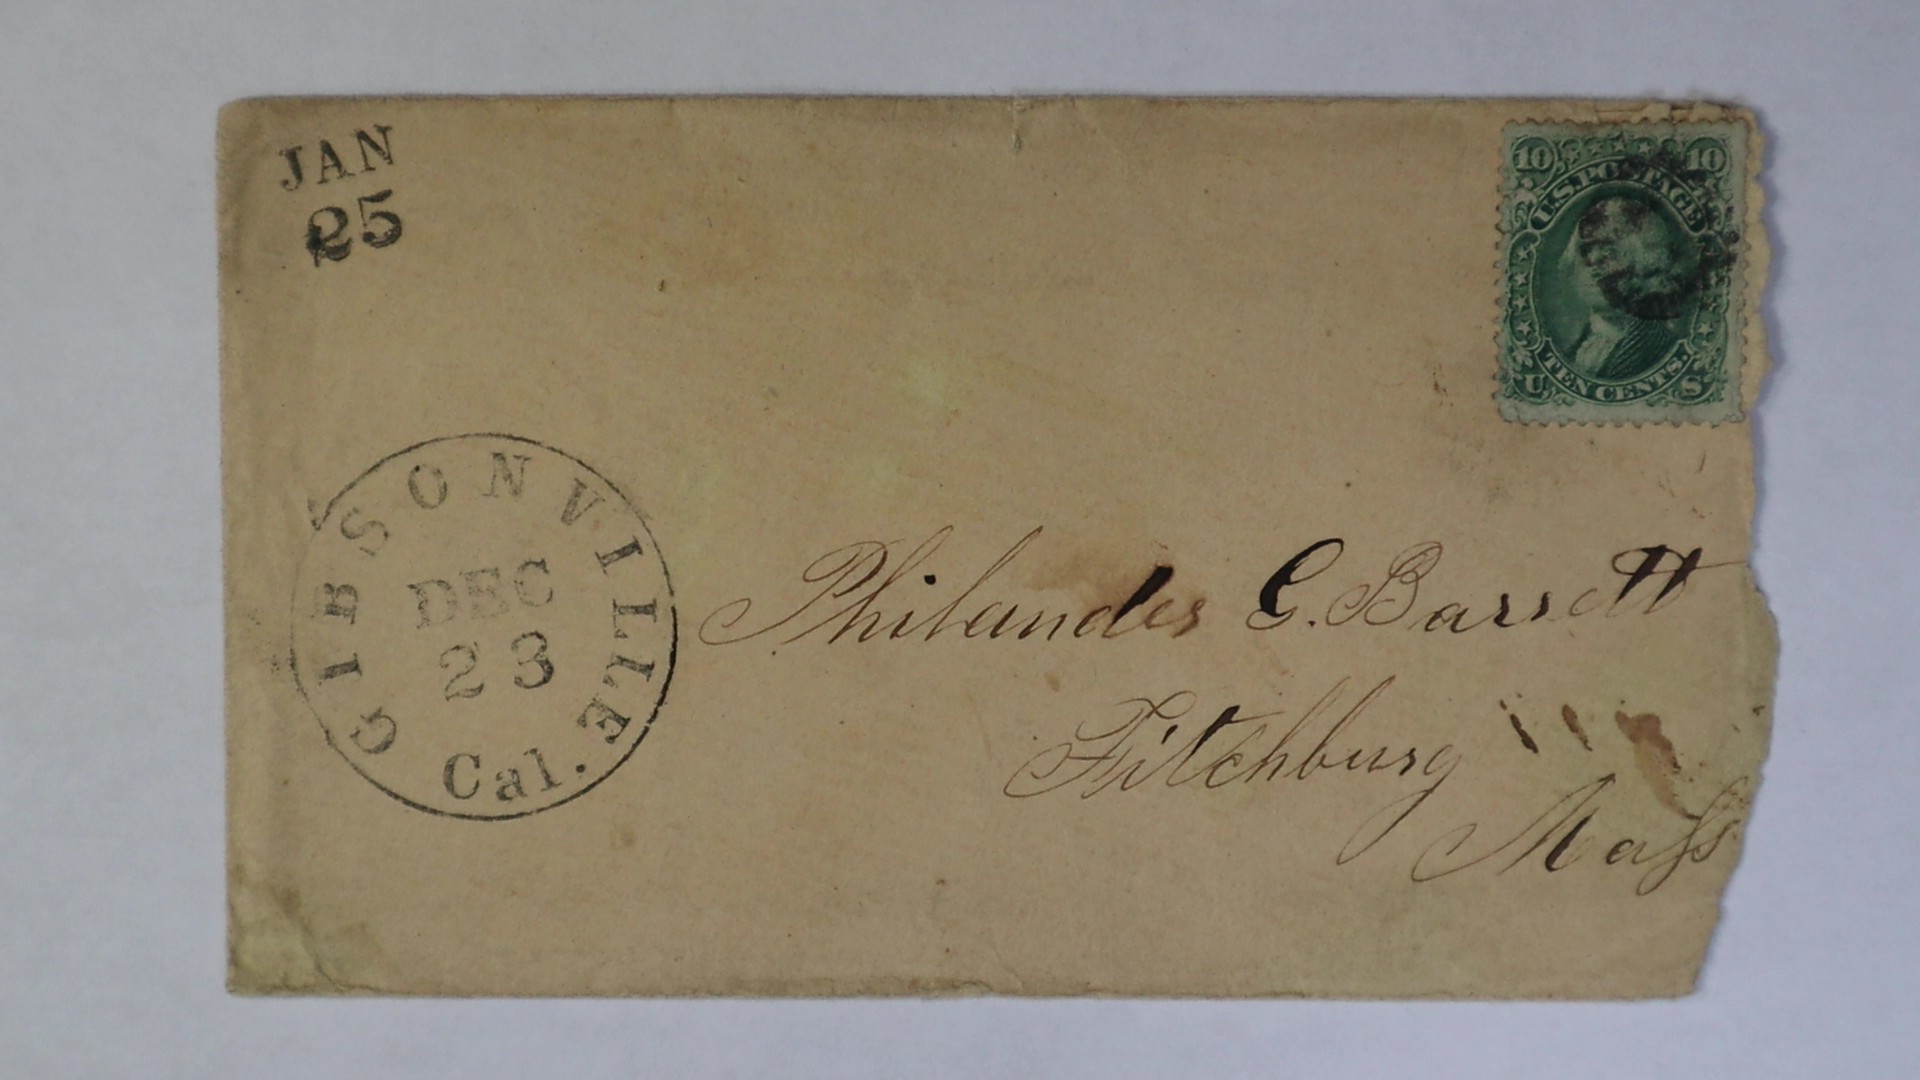 JAN
25
10 10
U.S. POSTAGE
TEN CENTS.
U S
GIBSONVILLE
DEC
23
Cal.
Philander C. Barrett
Fitchburg
Mass